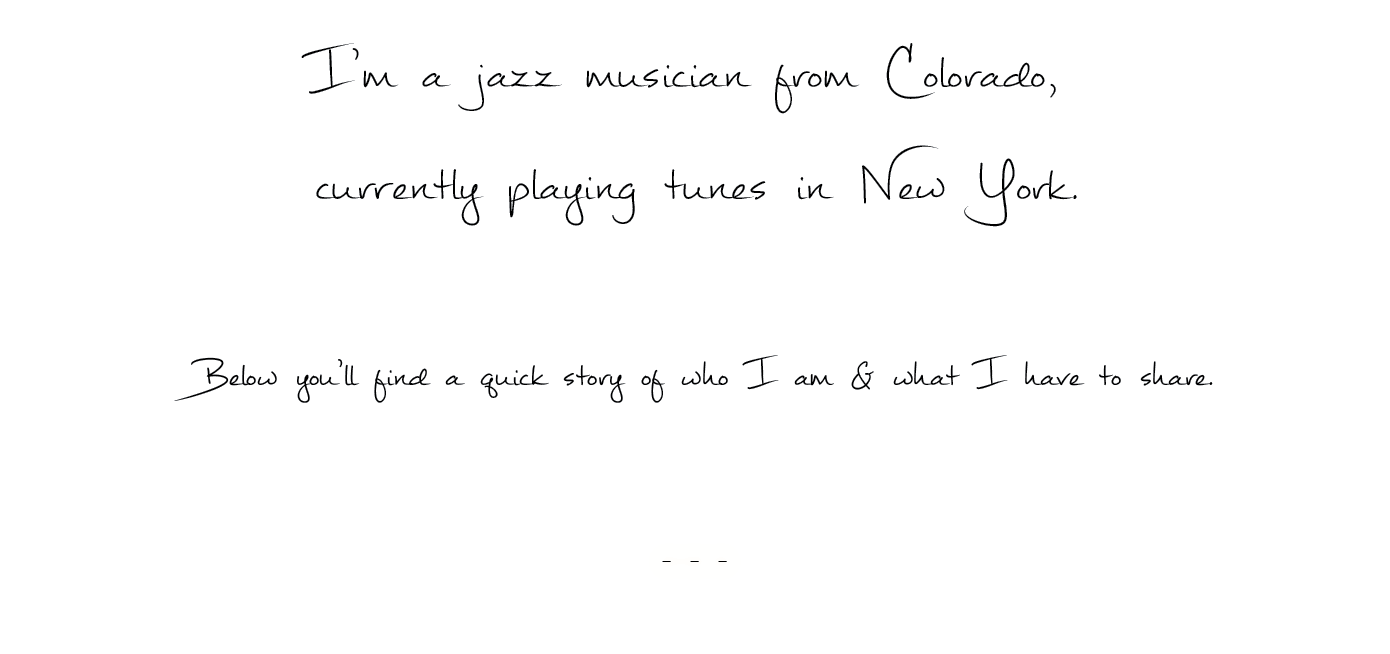 I'm a jazz musician from Colorado,
currently playing tunes in New York.
Below you'll find a quick story of who I am & what I have to share.
- - -